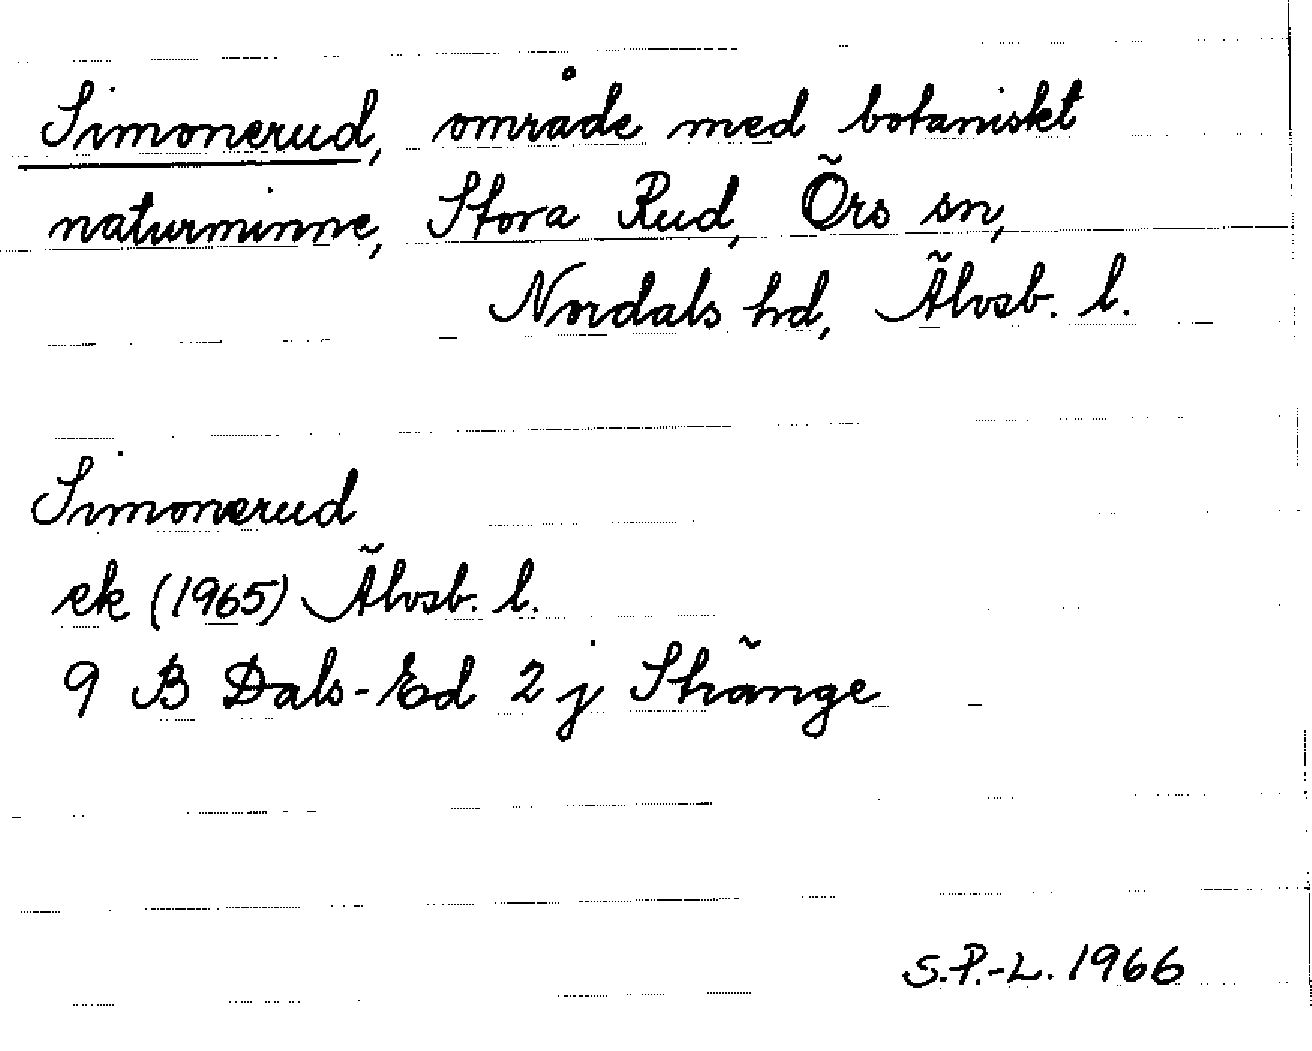 Simonerud, område med botaniskt
naturminne, Stora Rud, Örs sn,
Nordals hd, Älvsb. l.
Simonerud
ek (1965) Älvsb. l.
9 B Dals-Ed 2 j Stränge
S.P.-L. 1966